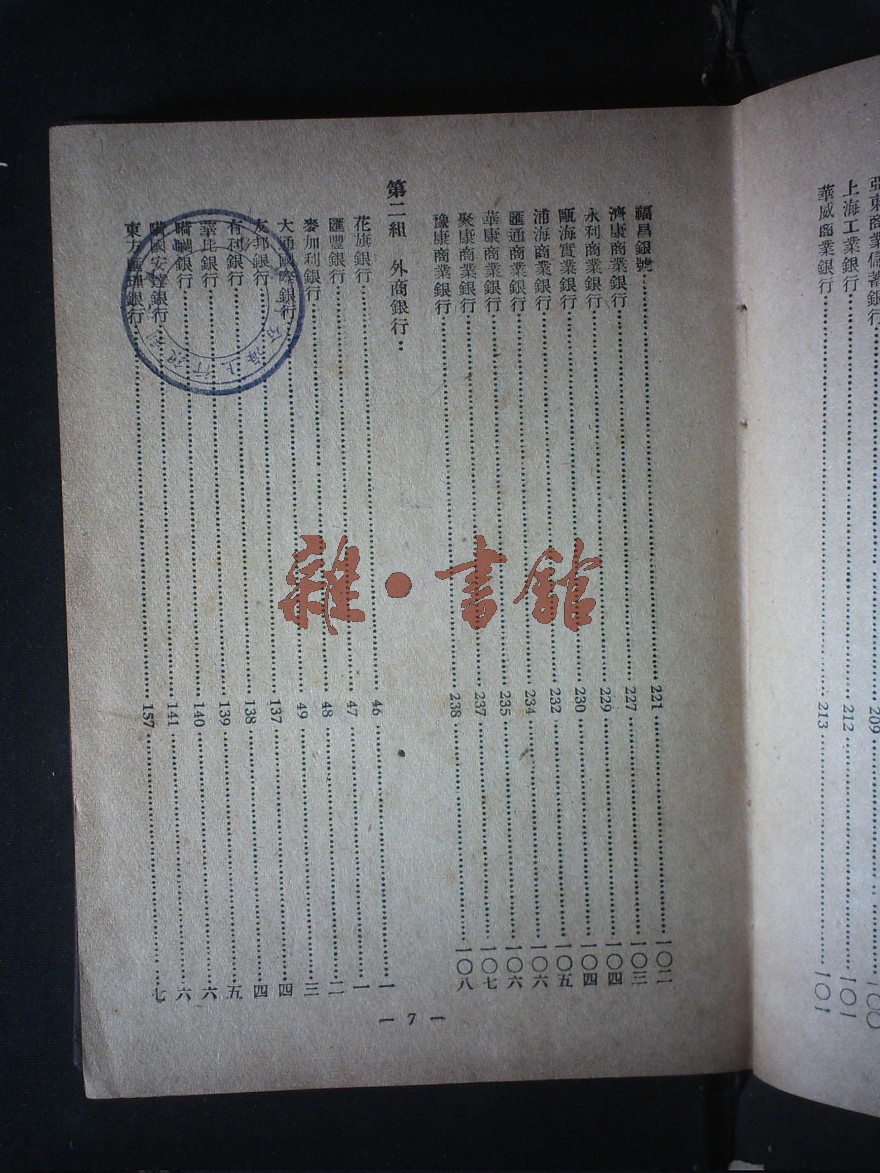 亞東商業儲蓄銀行……209……一〇〇
上海工業銀行……212……一〇一
華威商業銀行……213……一〇一
福昌銀號……221……一〇二
濟康商業銀行……227……一〇三
永利商業銀行……229……一〇四
甌海實業銀行……230……一〇四
浦海商業銀行……232……一〇五
匯通商業銀行……234……一〇六
華康商業銀行……235……一〇六
聚康商業銀行……237……一〇七
豫康商業銀行……238……一〇八
第二組 外商銀行：
花旗銀行……46……一
匯豐銀行……47……一
麥加利銀行……48……二
大通國際銀行……49……三
友邦銀行……137……四
有利銀行……138……四
華比銀行……139……五
銀行……140……六
國安達銀行……141……六
東方匯理銀行……157……七
— 7 —
雜·書館